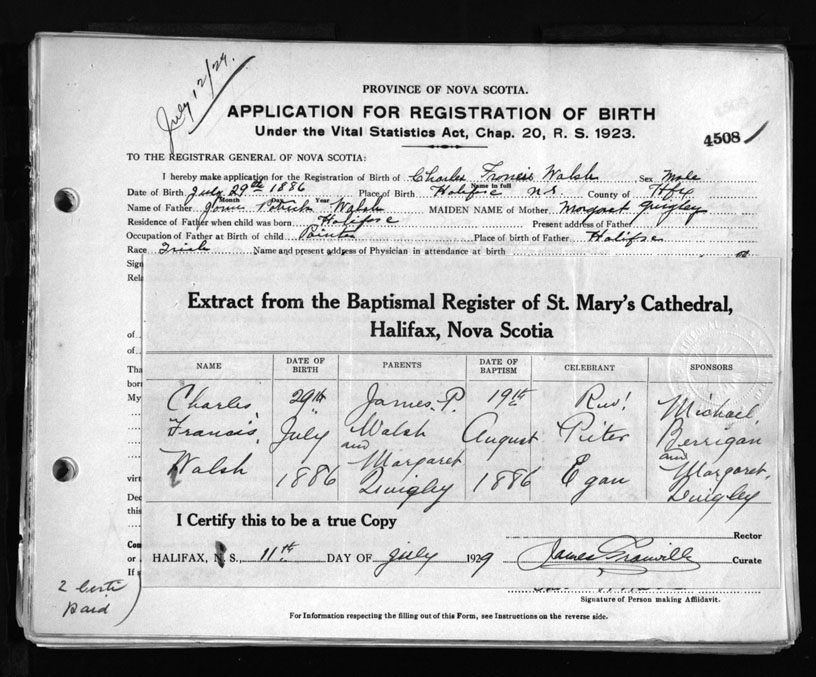 July 12/29
PROVINCE OF NOVA SCOTIA.
APPLICATION FOR REGISTRATION OF BIRTH
Under the Vital Statistics Act, Chap. 20, R. S. 1923.
4508
TO THE REGISTRAR GENERAL OF NOVA SCOTIA:
I hereby make application for the Registration of Birth of Charles Francis Walsh Sex Male
Name in full
Date of Birth July 29th 1886 Place of Birth Halifax N.S. County of Hfx
Month Day Year
Name of Father James Patrick Walsh MAIDEN NAME of Mother Margaret Quigley
Residence of Father when child was born Halifax Present address of Father
Occupation of Father at Birth of child Painter Place of birth of Father Halifax
Race Irish Name and present address of Physician in attendance at birth
Sign
Rela
of
of
Tha
born
My
virt
Dec
this
Con
or
If
Extract from the Baptismal Register of St. Mary's Cathedral,
Halifax, Nova Scotia
NAME DATE OF BIRTH PARENTS DATE OF BAPTISM CELEBRANT SPONSORS
Charles 29th James P. 19th Rev! Michael
Francis, July Walsh August Peter Berrigan
and and
Walsh 1886 Margaret 1886 Egan Margaret
Quigley Quigley
I Certify this to be a true Copy
Rector
HALIFAX, N.S., 11th DAY OF July 1929 James Granville Curate
2 certs
paid
Signature of Person making Affidavit.
For Information respecting the filling out of this Form, see Instructions on the reverse side.